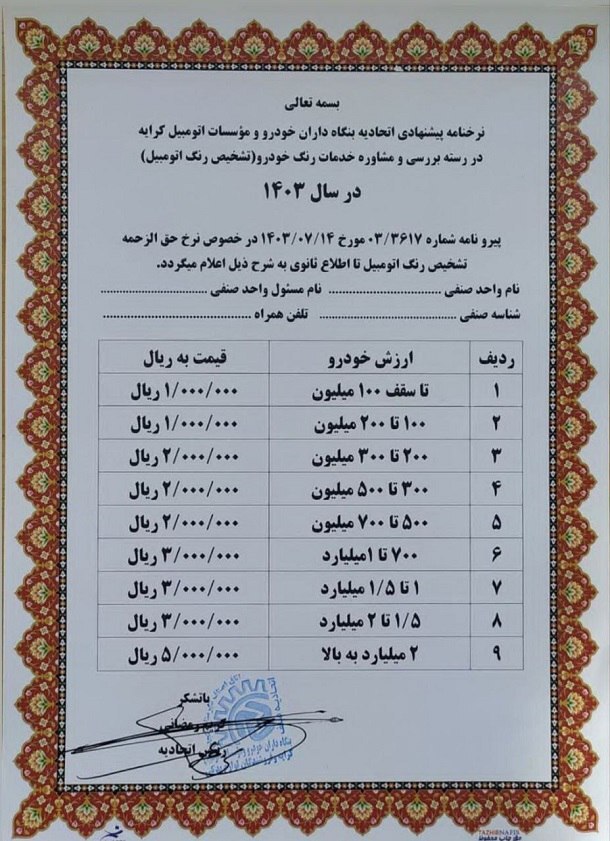 بسمه تعالی
نرخنامه پیشنهادی اتحادیه بنگاه داران خودرو و مؤسسات اتومبیل کرایه
در رسته بررسی و مشاوره خدمات رنگ خودرو(تشخیص رنگ اتومبیل)
در سال ۱۴۰۳
پیرو نامه شماره ۰۳/۳۶۱۷ مورخ ۱۴۰۳/۰۷/۱۴ در خصوص نرخ حق الزحمه
تشخیص رنگ اتومبیل تا اطلاع ثانوی به شرح ذیل اعلام میگردد.
نام واحد صنفی ........................ نام مسئول واحد صنفی ........................
شناسه صنفی ............................ تلفن همراه ....................................
ردیف ارزش خودرو قیمت به ریال
۱ تا سقف ۱۰۰ میلیون ۱/۰۰۰/۰۰۰ ریال
۲ ۱۰۰ تا ۲۰۰ میلیون ۱/۰۰۰/۰۰۰ ریال
۳ ۲۰۰ تا ۳۰۰ میلیون ۲/۰۰۰/۰۰۰ ریال
۴ ۳۰۰ تا ۵۰۰ میلیون ۲/۰۰۰/۰۰۰ ریال
۵ ۵۰۰ تا ۷۰۰ میلیون ۲/۰۰۰/۰۰۰ ریال
۶ ۷۰۰ تا ۱میلیارد ۳/۰۰۰/۰۰۰ ریال
۷ ۱ تا ۱/۵ میلیارد ۳/۰۰۰/۰۰۰ ریال
۸ ۱/۵ تا ۲ میلیارد ۳/۰۰۰/۰۰۰ ریال
۹ ۲ میلیارد به بالا ۵/۰۰۰/۰۰۰ ریال
باتشکر
رمضانی
رئیس اتحادیه
TAZHIBNAFIS
حق چاپ محفوظ